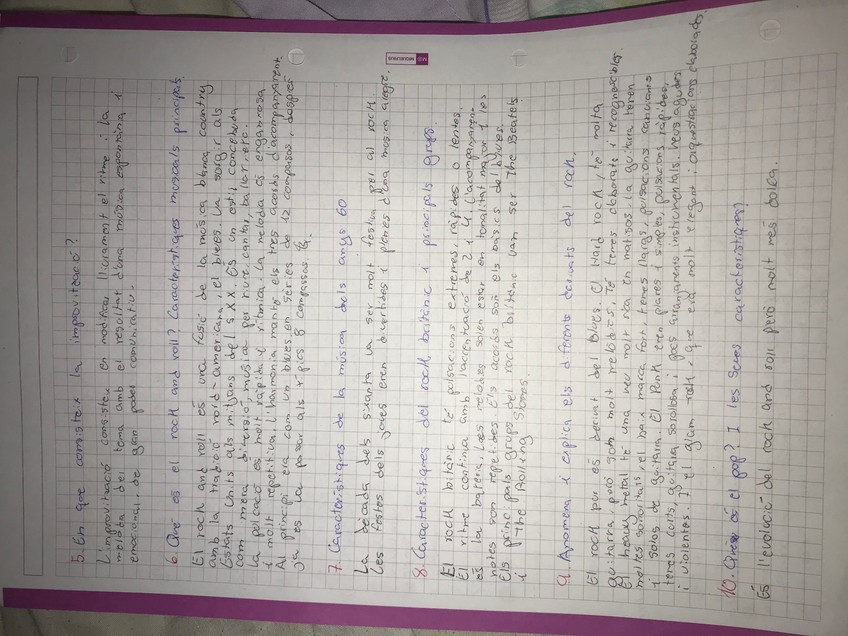 5. En que consisteix la improvització?
L'improvització consisteix en modificar lliurament el ritme i la
melodia del tema amb el resultat d'una música espontània i
emocional, de gran poder comunicatiu.
6. Què és el rock and roll? Característiques musicals principals.
El rock and roll és una fusió de la música blanca country
amb la tradició nord-americana, el blues. Va sorgir als
Estats Units als mitjans del s.XX. És un estil concebuda
com mera diversió, música per riure, cantar, ballar, etc.
La pulsació és molt ràpida i rítmica. La melodia és enganxosa
i molt repetitiva. L'harmonia manté els tres acords d'acompanyament.
Al principi era com un blues, en sèries de 12 compassos, després
ja es va passar als 4 pas 8 compassos.
7. Característiques de la música dels anys 60
La dècada dels sixanta va ser molt festiva per al rock
Les festes dels joves eren divertides i plenes d'una música alegre.
8. Característiques del rock britànic i principals grups.
El rock bitànic té pulsacions extremes, ràpides o lentes.
El ritme continua amb l'accentació de 2 i 4. L'acompanyament
és la bateria. Les melodies solen estar en tonalitat major i les
notes son repetides. Els acords són els bàsics del blues.
Els principals grups del rock britànic van ser The Beatels
i The Rolling Stones.
9. Anomena i explica els diferents derivats del rock.
El rock pur és derivat del Blues. El Hard rock, té molta
guitarra però són molt melòdics, té temes elaborats i recognoscibles.
El heavy metal té una veu molt rica en matisos, la guitarra tenen
moltes sonoritats, el baix marca fort, temes llargs, pulsacions canviants
i solos de guitarra. El Punk eren planes i simples, pulsacions ràpides,
temes curts, guitarra sorollosa i pocs arranjaments instrumentals. Veus agudes
i violentes. I el glam rock, que era molt elegant i orquestracions elaborades.
10. Què és el pop? I les seves característiques?
És l'evolució del rock and roll però molt més dolça.
MIQUELRIUS